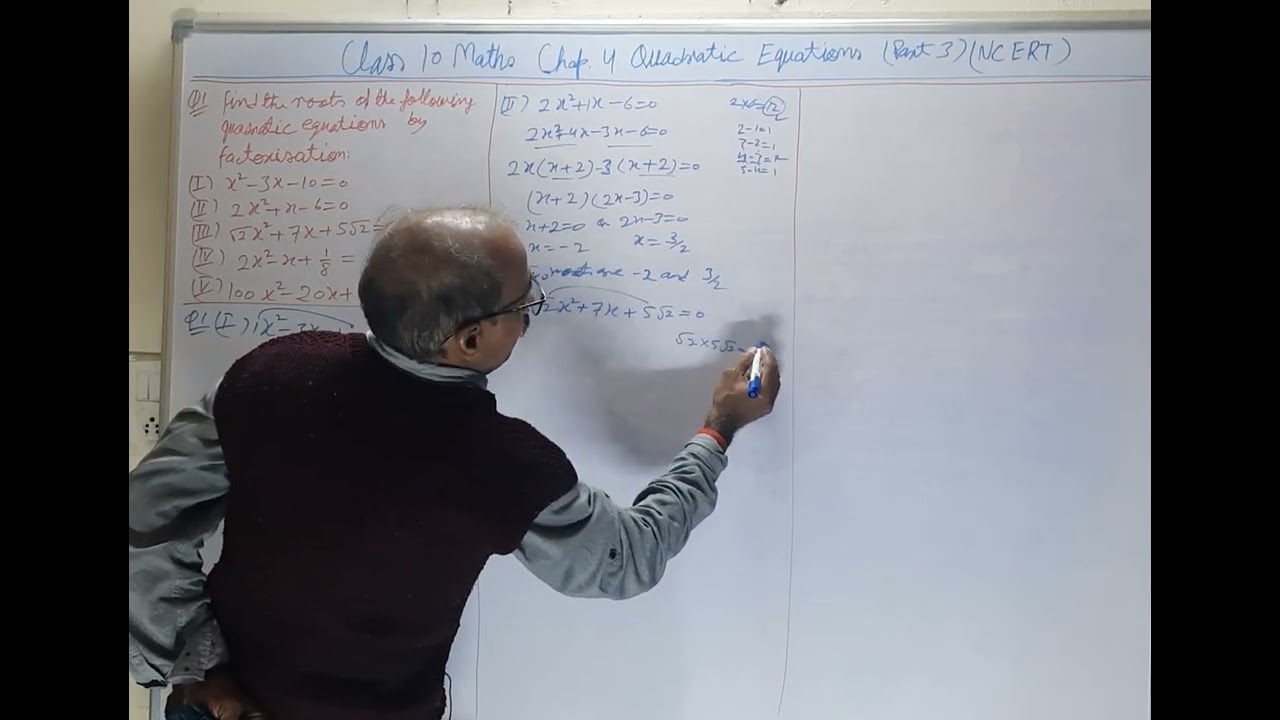 Class 10 Maths Chap. 4 Quadratic Equations (Part 3) (NCERT)
Q1 Find the roots of the following
quadratic equations by
factorisation:
(I) x² - 3x - 10 = 0
(II) 2x² + x - 6 = 0
(III) √2x² + 7x + 5√2 =
(IV) 2x² - x + 1/8 =
(V) 100x² - 20x +
Q1 (I) 1x² - 3x
(II) 2x² + 1x - 6 = 0
2x² + 4x - 3x - 6 = 0
2x(x+2) - 3(x+2) = 0
(x+2)(2x-3) = 0
x+2=0 or 2x-3=0
x = -2 x = 3/2
roots are -2 and 3/2
√2x² + 7x + 5√2 = 0
√2 × 5√2 =
2×6=12
2-1=1
3-2=1
4-3=1
5-4=1